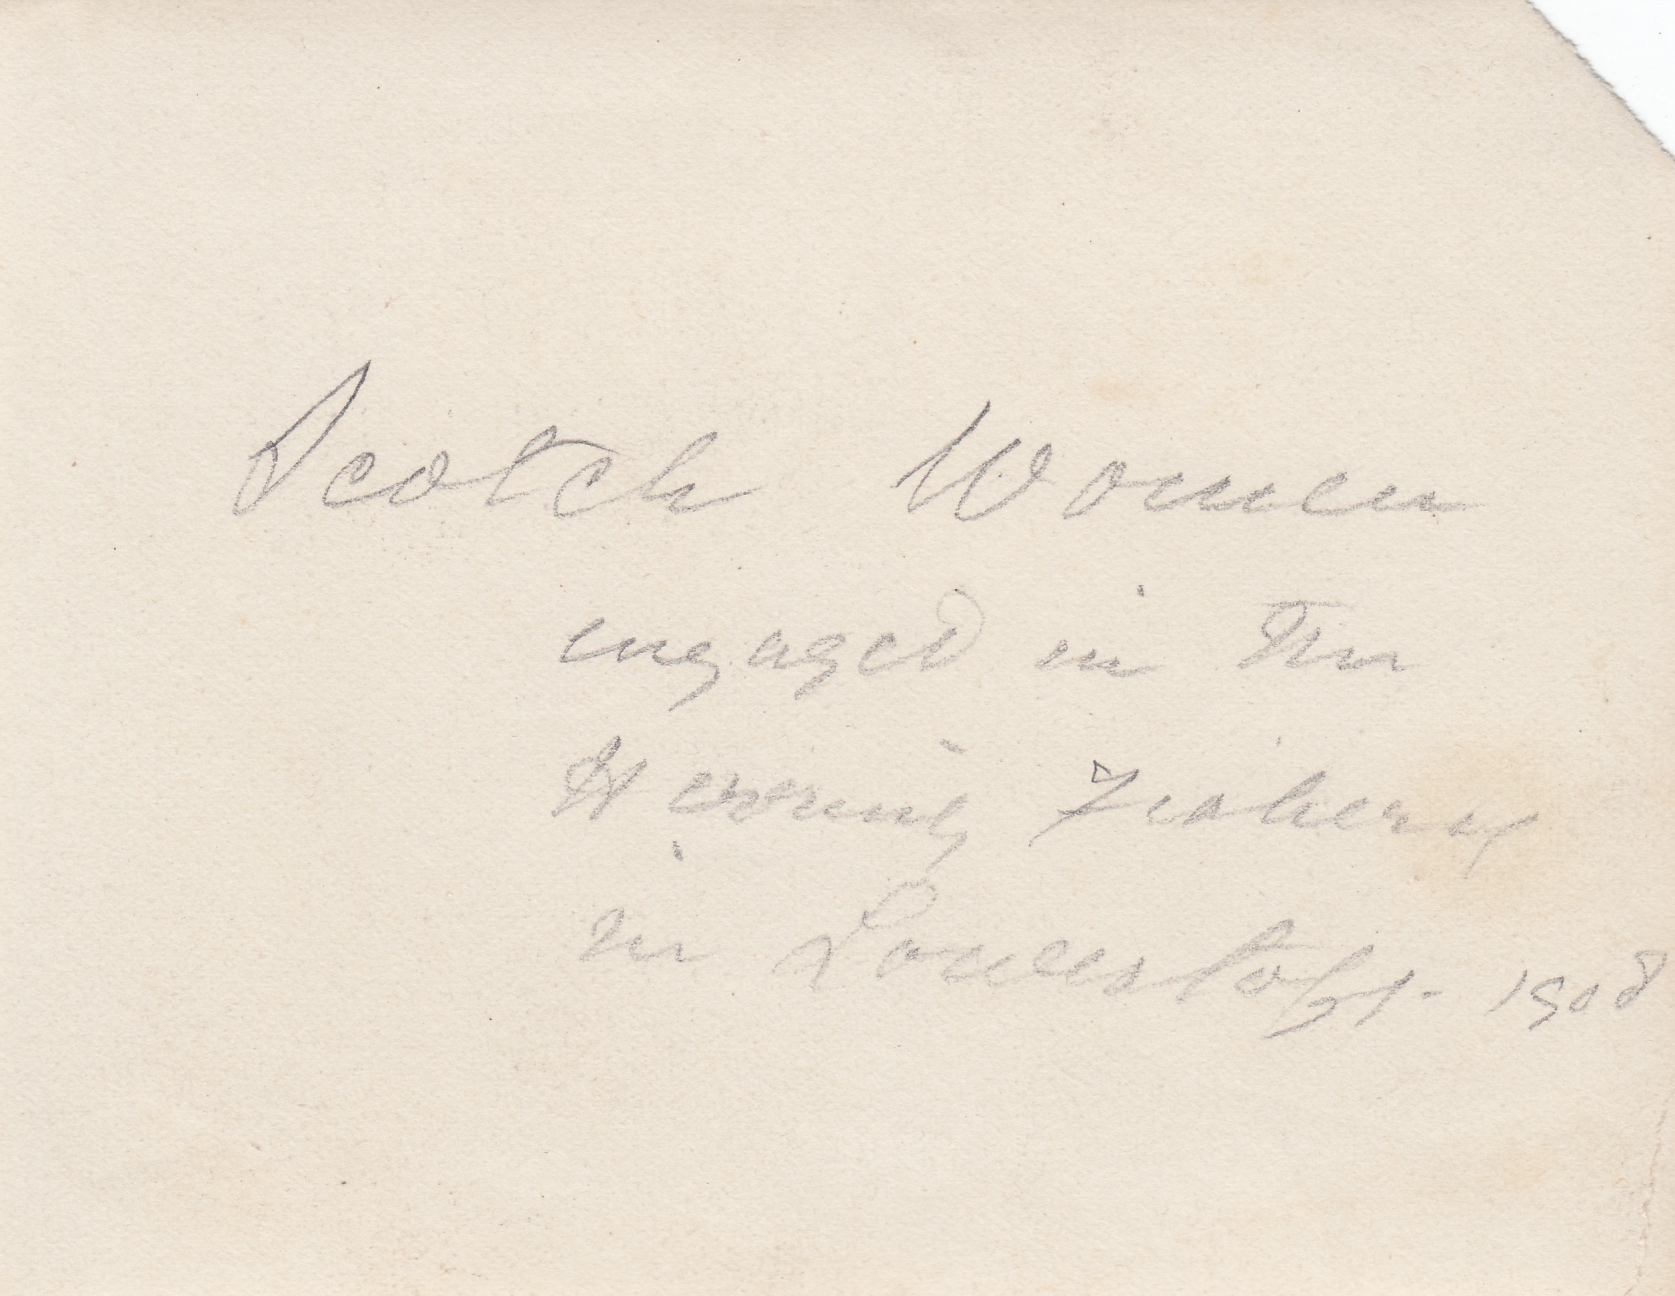 Scotch Women
engaged in the
Herring Fishery
in Lowestoft - 1908